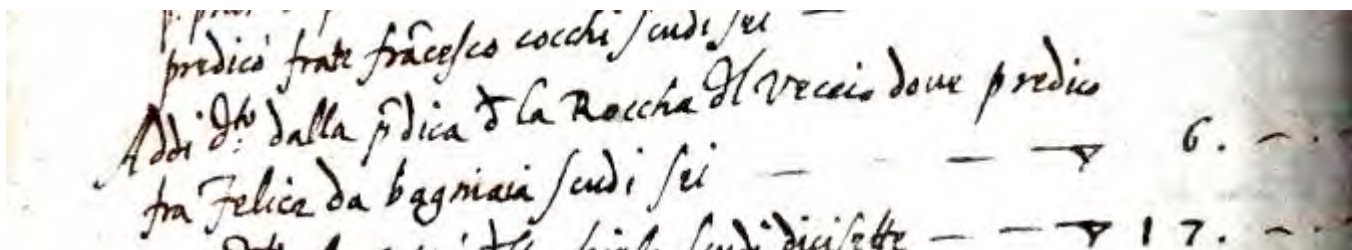 predicò frate frãcesco cocchi scudi sei —
Addi dto dalla p̃dica d la Roccha dl Veccio doue predico
fra Felice da bagniaia scudi sei — — — ▽ 6. —
scudi dicisette — — ▽ 17. —